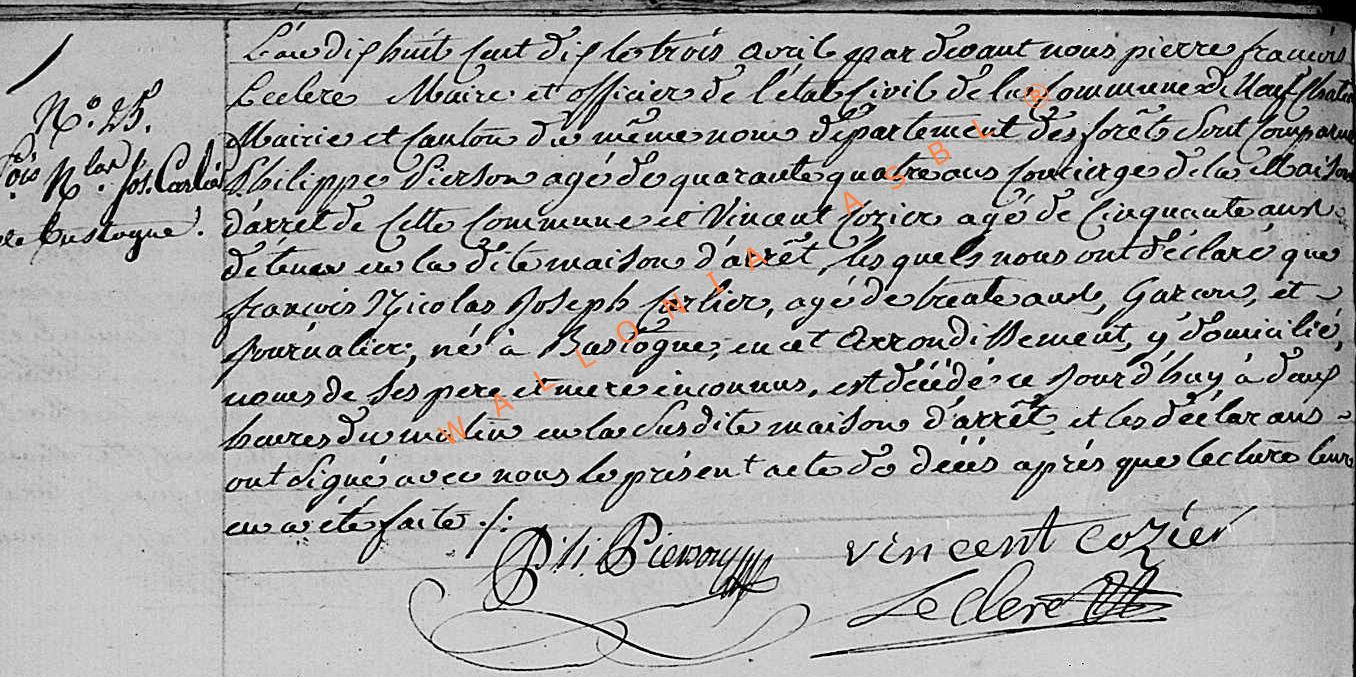 N.° 25.
fois N.las Jos. Carlier
de Bastogne.
L'an dix huit cent dix le trois avril par devant nous pierre françois
Leclere Maire et officier de l'état Civil de la Commune de Neufchateau
Mairie et Canton du même nom département des forêts Sont Comparus
Philippe Pierson agé de quarante quatre ans Concierge de la Maison
d'arrêt de Cette Commune et Vincent Cozier agé de Cinquante ans
détenu en la dite maison d'arrêt, lesquels nous ont déclaré que
françois Nicolas Joseph Carlier, agé de trente ans, Garçon, et
Journalier, né à Bastogne, en cet Arrondissement, y domicilié,
noms de Ses pere et mere inconnus, est décédé ce Jourd'huy à deux
heures du matin en la Susdite maison d'arrêt, et les déclarans
ont Signé avec nous le présent acte de décès après que lecture leur
en a été faite ./.
Ph. Pierson
vincent cozier
Leclere
WALLONIA ASBL ®